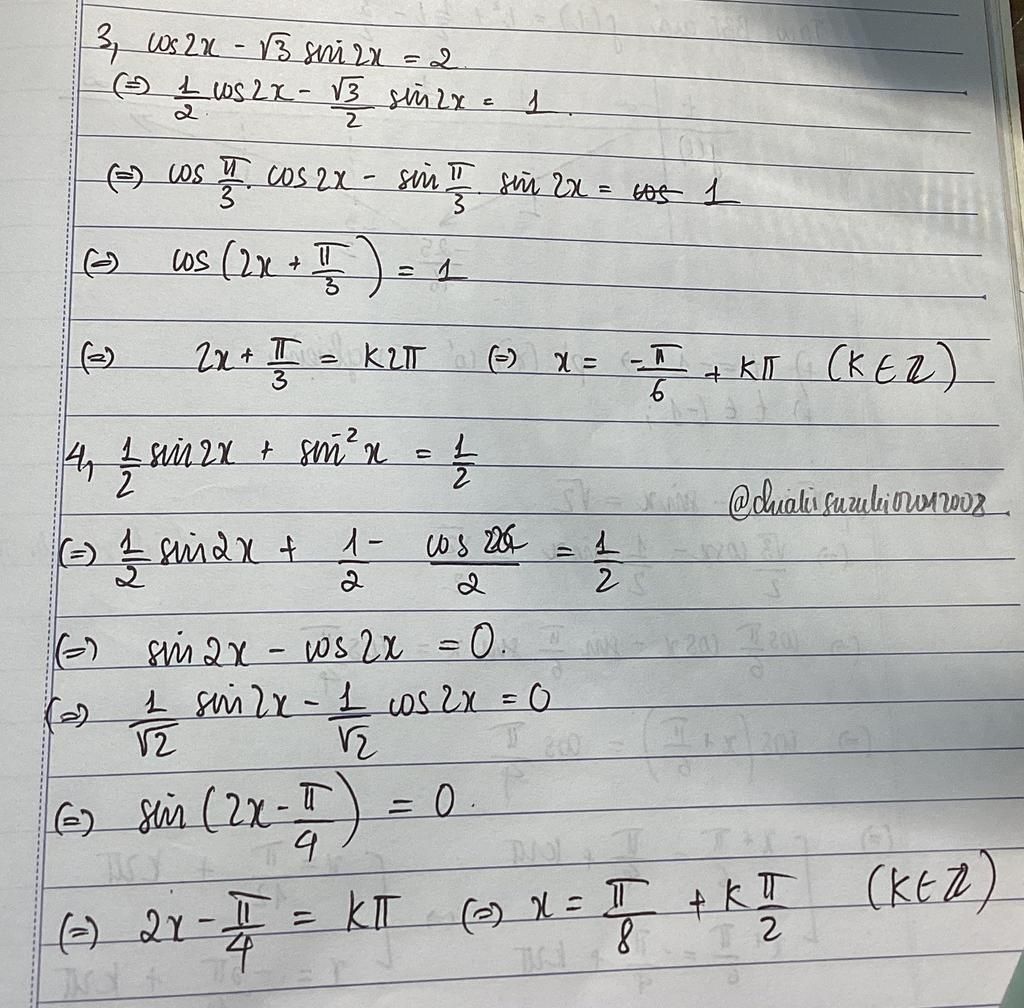 3, cos2x - √3 sin2x = 2
(=) 1/2 cos2x - √3/2 sin2x = 1.
(=) cos π/3 . cos2x - sin π/3 . sin 2x = cos 1
(=) cos (2x + π/3) = 1
(=) 2x + π/3 = K2π (=) x = -π/6 + Kπ (K ∈ Z)
4, 1/2 sin2x + sin²x = 1/2
@chiakisuzuki02012008
(=) 1/2 sin2x + 1/2 - cos 2x/2 = 1/2
(=) sin2x - cos2x = 0.
(=) 1/√2 sin2x - 1/√2 cos2x = 0
(=) sin (2x - π/4) = 0.
(=) 2x - π/4 = Kπ (=) x = π/8 + K π/2 (K ∈ Z)